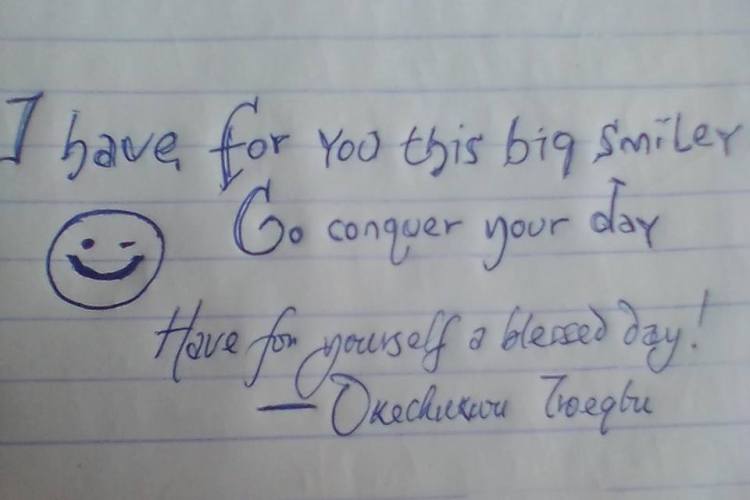 I have for you this big smiley
Go conquer your day
Have for yourself a blessed day!
— Okechukwu